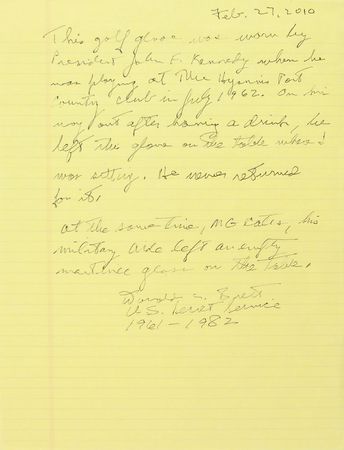 Feb. 27, 2010
This golf glove was worn by
President John F. Kennedy when he
was playing at The Hyannis Port
Country Club in July 1962. On his
way out after having a drink, he
left this glove on the table where I
was sitting. He never returned
for it.
At the same time, MG his
military aide left an empty
martinee glass on the table.
U.S. Secret Service
1961-1982